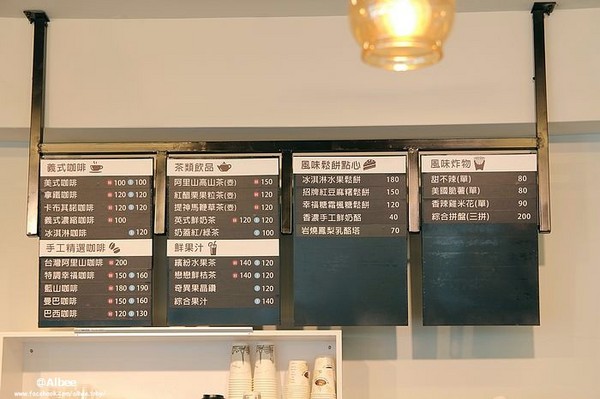 義式咖啡
美式咖啡 H 100 C 100
拿鐵咖啡 H 120 C 120
卡布其諾咖啡 H 120 C 120
義式濃縮咖啡 H 100
冰淇淋咖啡 C 120
手工精選咖啡
台灣阿里山咖啡 H 200
特調幸福咖啡 H 150 C 160
藍山咖啡 H 180 C 190
曼巴咖啡 H 150 C 160
巴西咖啡 H 120 C 130
茶類飲品
阿里山高山茶(壺) H 150
紅醋栗果粒茶(壺) H 150
提神馬鞭草茶(壺) H 150
英式鮮奶茶 H 120 C 120
奶蓋紅/綠茶 C 100
鮮果汁
繽紛水果茶 H 140 C 120
戀戀鮮桔茶 H 140 C 120
奇異果晶鑽 C 120
綜合果汁 C 140
風味鬆餅點心
冰淇淋水果鬆餅 180
招牌紅豆麻糬鬆餅 150
幸福糖霜楓糖鬆餅 120
香濃手工鮮奶酪 40
岩燒鳳梨乳酪塔 70
風味炸物
甜不辣(單) 80
美國脆薯(單) 80
香辣雞米花(單) 90
綜合拼盤(三拼) 200
©Albee